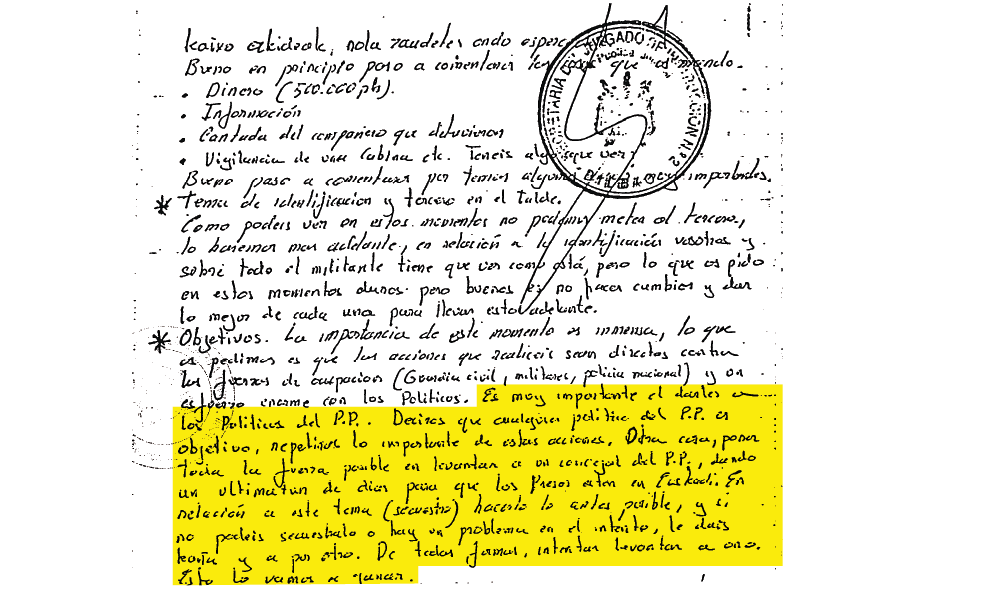 Kaixo adiskideok, nola zaudete? ondo espero
Bueno en principio paso a comentaros las cosas que os mando.
• Dinero (500.000 pts).
• Información
• Cantada del compañero que detuvieron
• Vigilancia de una cabina etc. Teneis algo que ver.
Bueno paso a comentaros por temas algunas cosas muy importantes.
* Tema de identificacion y tercero en el Talde.
Como podeis ver en estos momentos no podemos meter al tercero,
lo haremos mas adelante, en relación a la identificación vosotros y
sobre todo el militante tiene que ver como está, pero lo que os pido
en estos momentos duros pero buenos es no hacer cambios y dar
lo mejor de cada uno para llevar esto adelante.
* Objetivos. La importancia de este momento es inmensa, lo que
os pedimos es que las acciones que realiceis sean directas contra
las fuerzas de ocupacion (Guardia civil, militares, policia nacional) y un
esfuerzo enorme con los Politicos. Es muy importante el darles a
los Politicos del P.P. Deciros que cualquier politico del P.P. es
objetivo, repetiros lo importante de estas acciones. Otra cosa, poner
toda la fuerza posible en levantar a un concejal del P.P., dando
un ultimatun de dias para que los Presos esten en Euskadi. En
relación a este tema (secuestro) hacerlo lo antes posible, y si
no podeis secuestralo o hay un problema en el intento, le dais
y a por otro. De todas formas, intentar levantar a uno.
Esto lo vamos a ganar.
SECRETARIA DEL JUZGADO DE INSTRUCCIÓN N.º 2